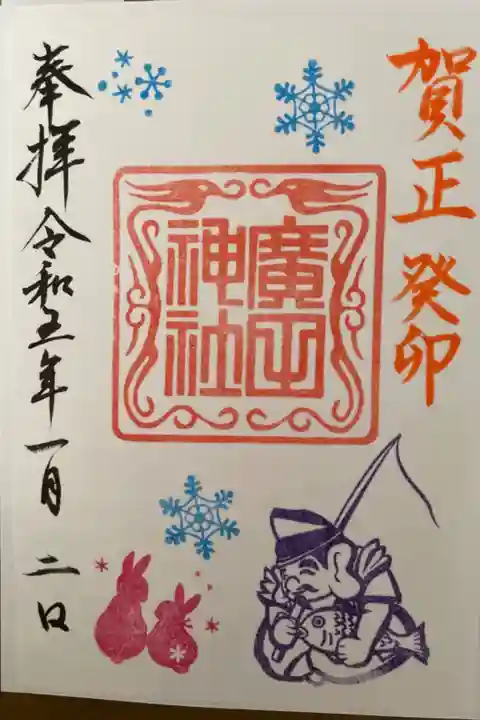 賀正 癸卯
廣田
神社
奉拝 令和五年一月二日